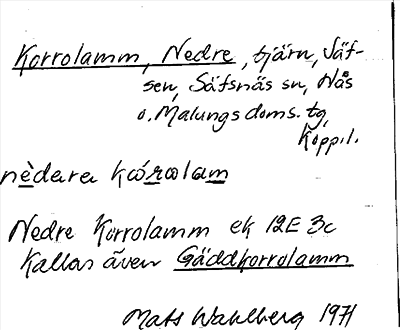 Korrolamm, Nedre, tjärn, Säf-
sen, Säfsnäs sn, Nås
o. Malungs doms. tg,
Koppil.
nèdara kárɷlam
Nedre Korrolamm ek 12E 3c
Kallas även Gäddkorrolamm
Mats Wahlberg 1971